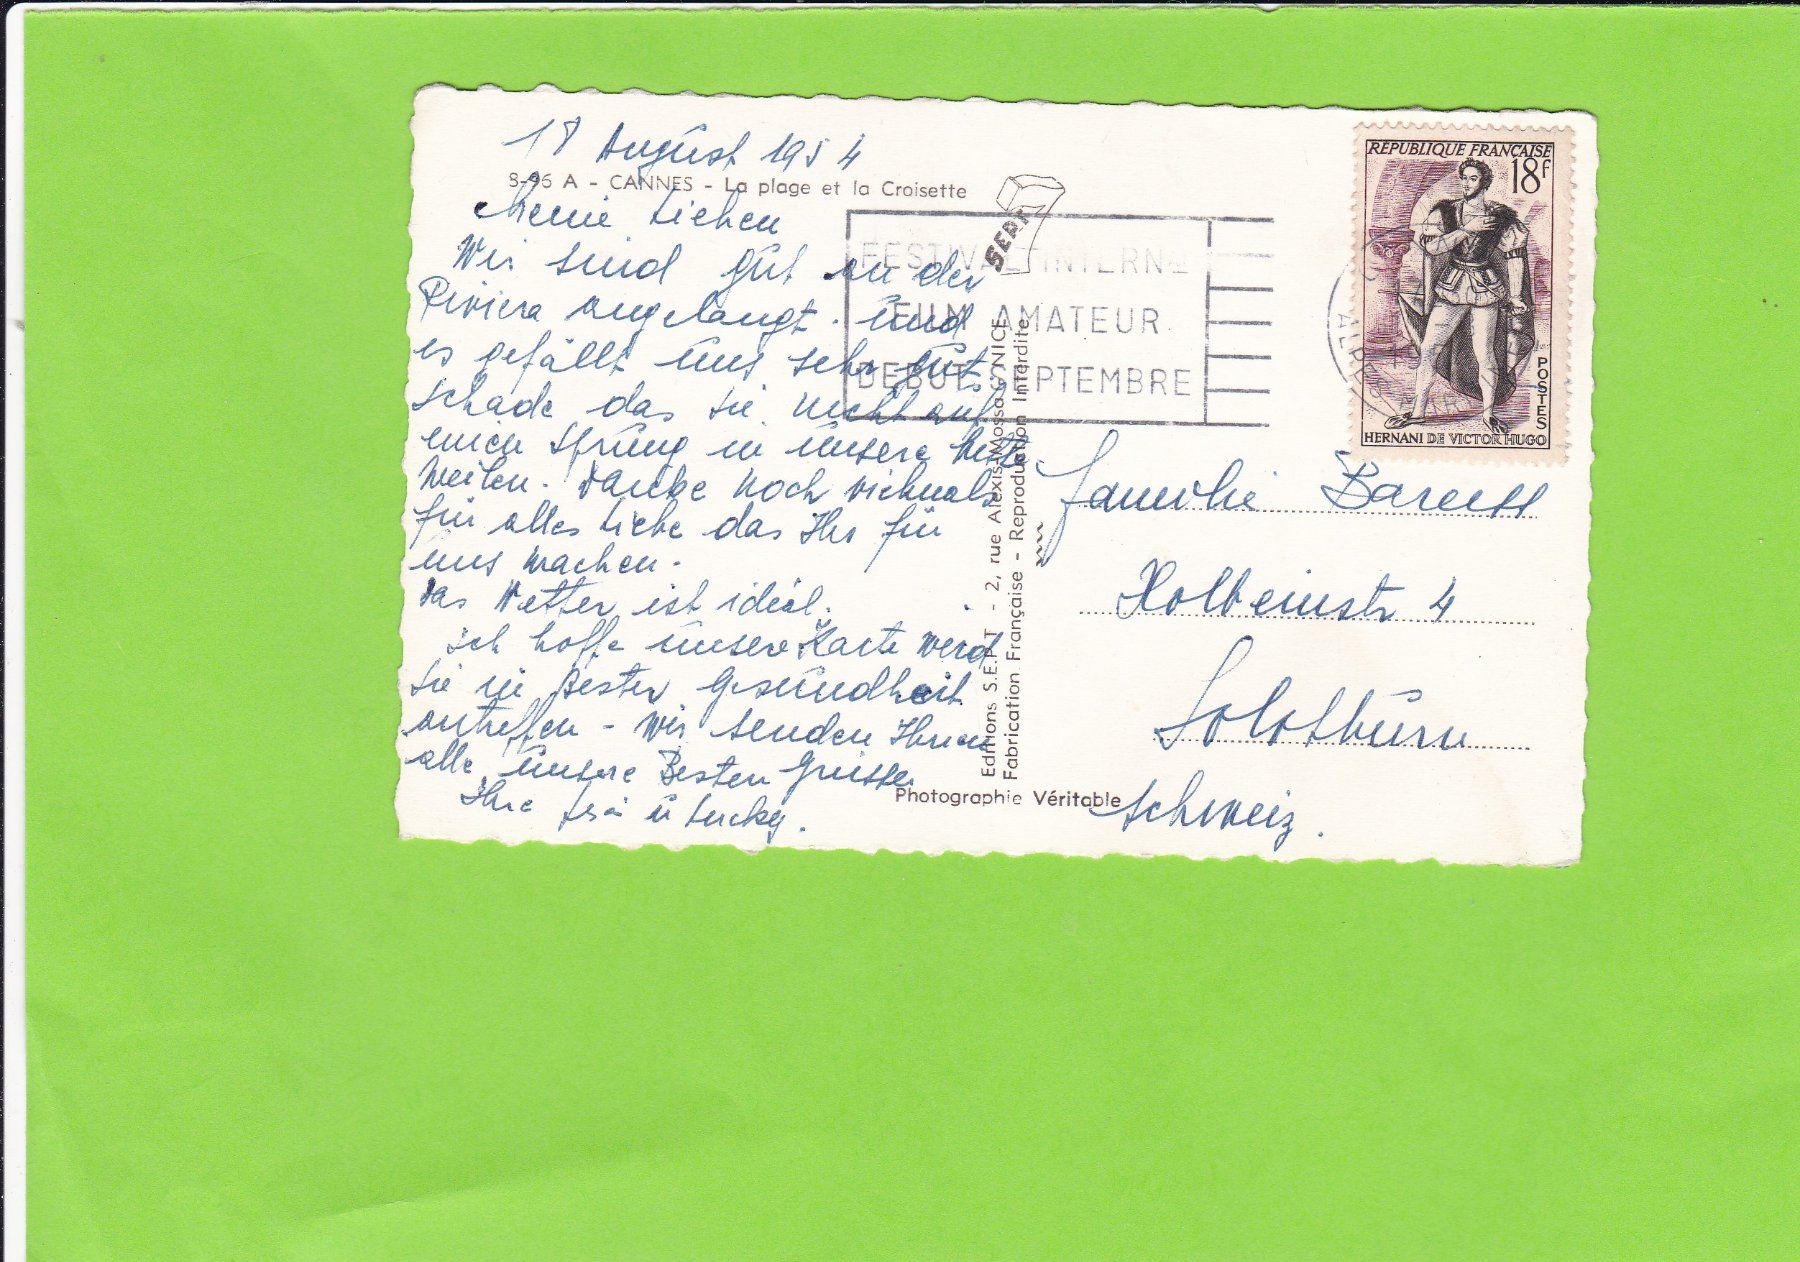 August 1954
8-96 A - CANNES - La plage et la Croisette
Meine Lieben
Wir sind gut an der
Riviera angelangt. und
es gefällt uns sehr gut,
schade das sie nicht auf
einen sprung in unsere
weilen. Dancke noch vielmals
für alles Liebe das Ihr für
uns machen.
Das Wetter ist ideal.
Ich hoffe unsere Karte werd
Sie in Bester Gesundheit
antreffen - Wir senden Ihnen
alle unsere Besten Grüsse
Ihre u Lucky.
SEPT
Editions S.E.P.T - 2, rue Alexis Mossa, NICE
Fabrication Française - Reproduction Interdite
Photographie Véritable
FESTIVAL INTERN
FILM AMATEUR
DEBUT SEPTEMBRE
RÉPUBLIQUE FRANÇAISE
18f
POSTES
HERNANI DE VICTOR HUGO
Familie
Holbeinstr 4
Solothurn
Schweiz.